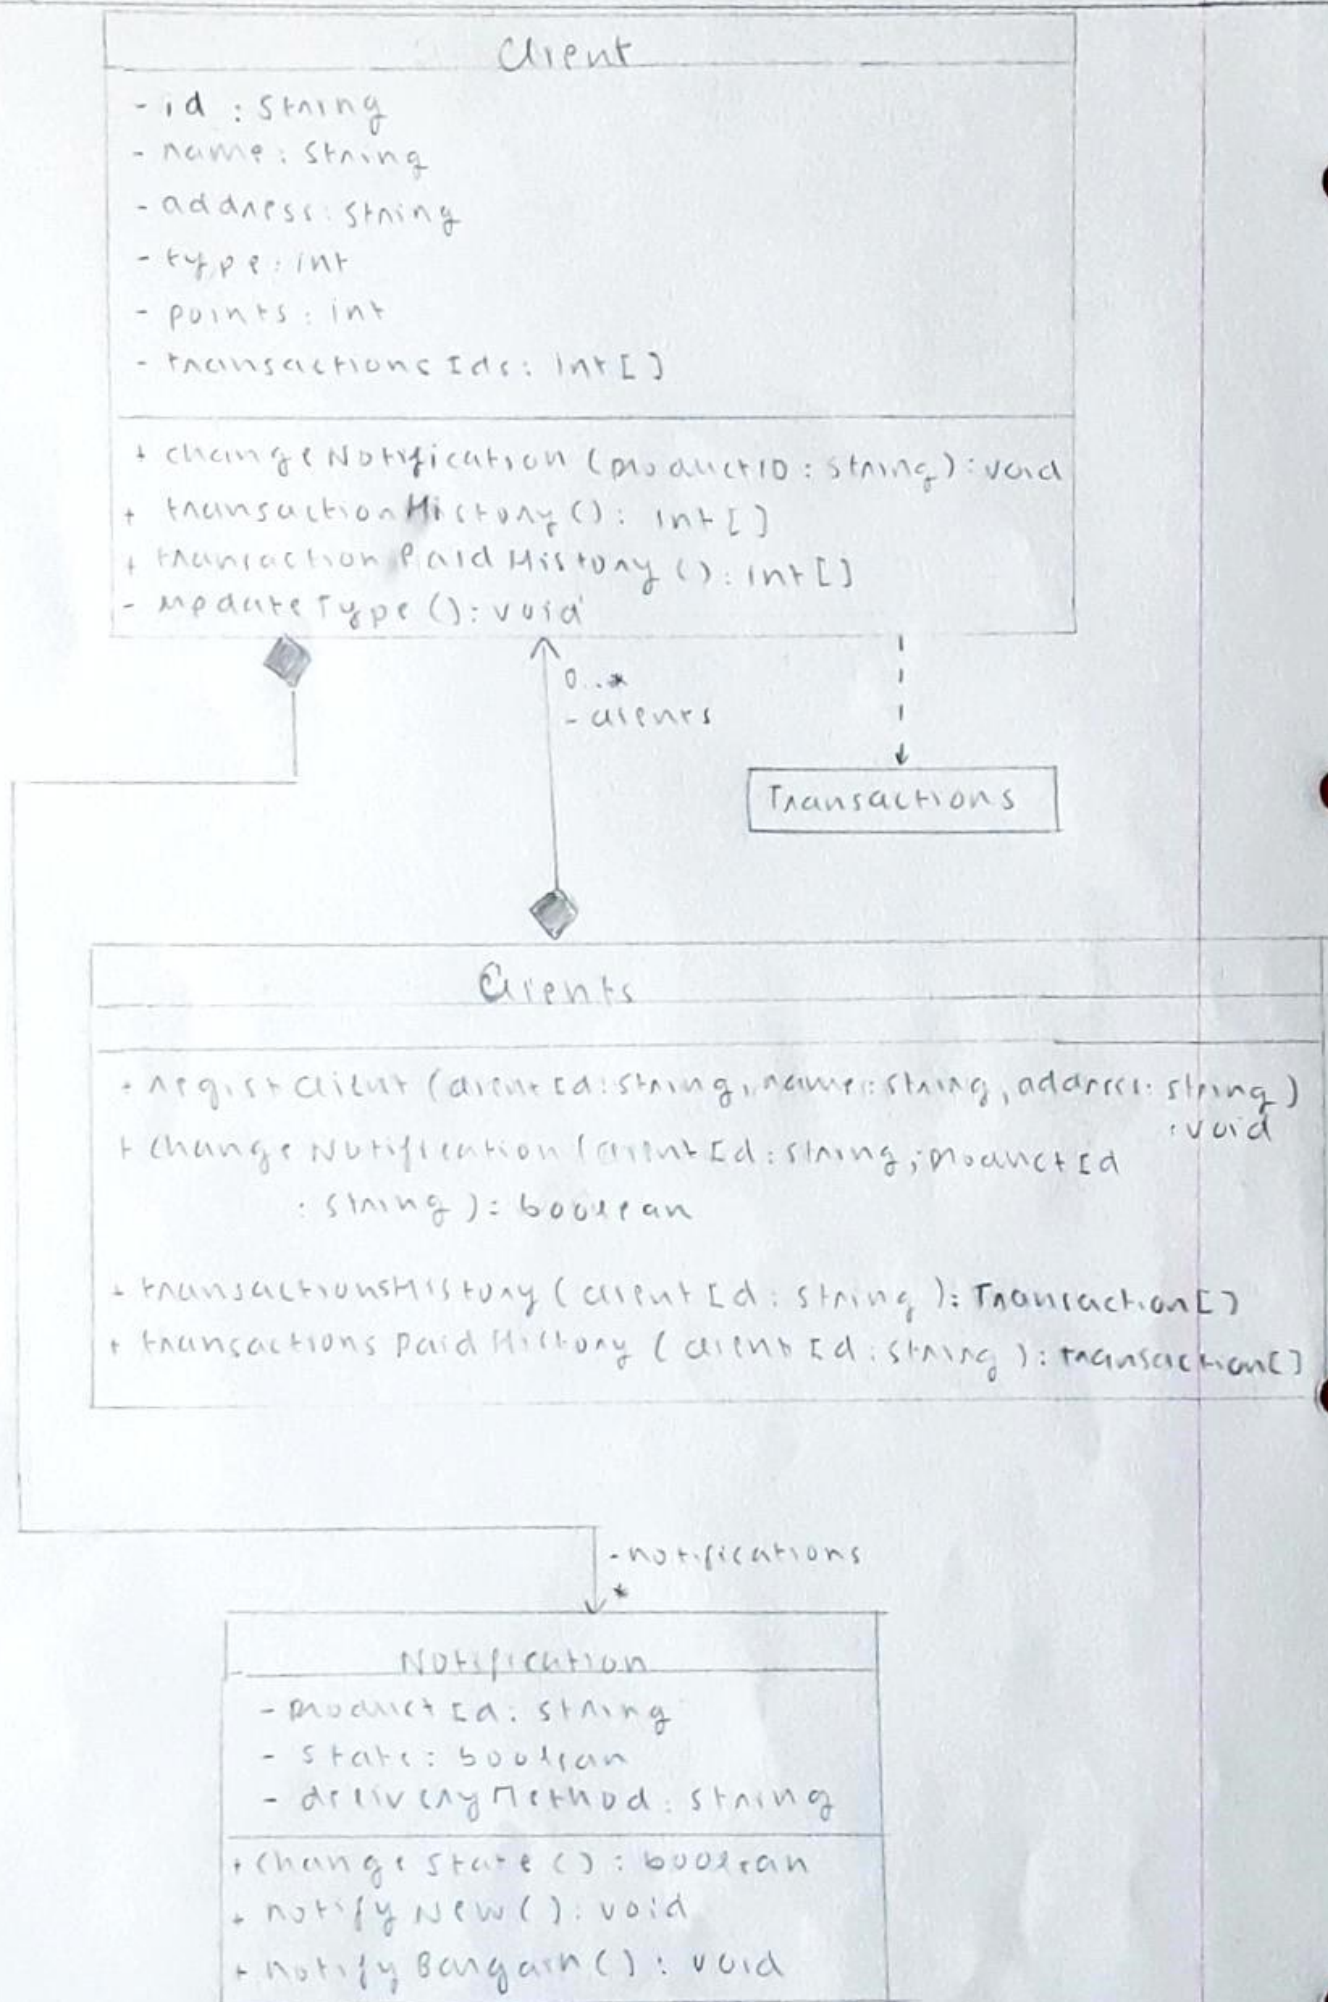 Client
- id : string
- name : string
- address : string
- type : int
- points : int
- transactionsIds : int[]
+ changeNotification (productID : string) : void
+ transactionHistory () : int[]
+ transactionPaidHistory () : int[]
- updateType () : void
0..*
- clients
Transactions
Clients
+ registClient (clientId : string, name : string, address : string)
: void
+ changeNotification (clientId : string, productId
: string) : boolean
+ transactionsHistory (clientId : string) : Transaction[]
+ transactionsPaidHistory (clientId : string) : transaction[]
- notifications
*
Notification
- productId : string
- state : boolean
- deliveryMethod : string
+ changeState () : boolean
+ notifyNew () : void
+ notifyBargain () : void